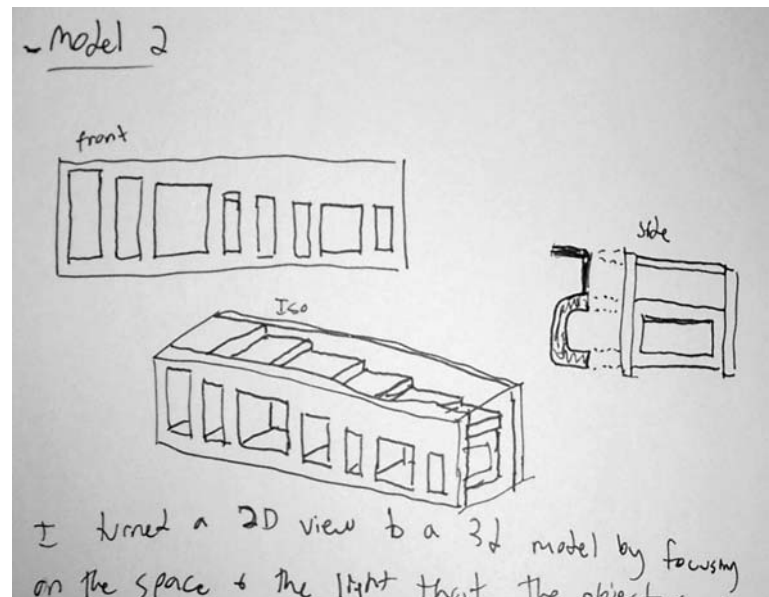 - Model 2
front
side
Iso
I turned a 2D view to a 3d model by focusing
on the space & the light that the object